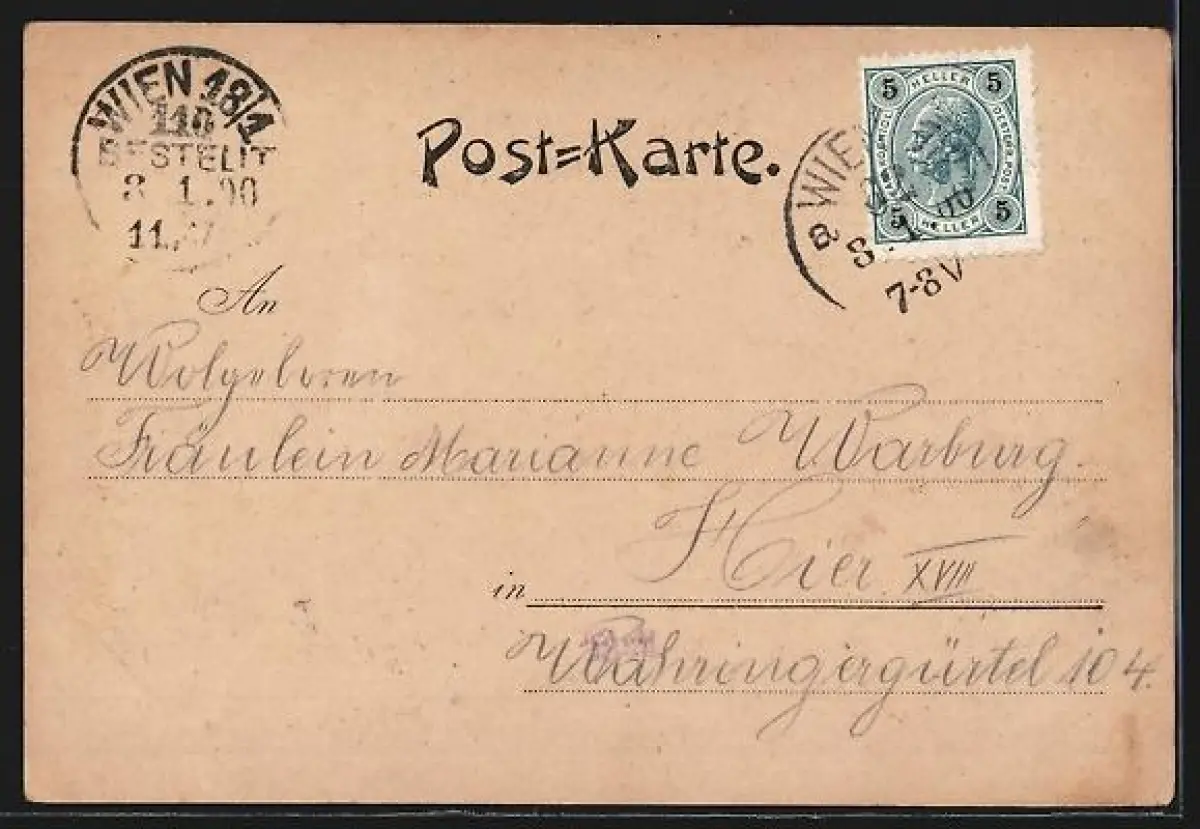 WIEN 18/1
110
BESTELLT
8 1.00
11
Post=Karte.
5 HELLER 5
5 HELLER 5
WIE
8. 1. 00
7-8V
An
Wolgeboren
Fräulein Marianne Warburg.
in Hier XVIII
Währingergürtel 104.